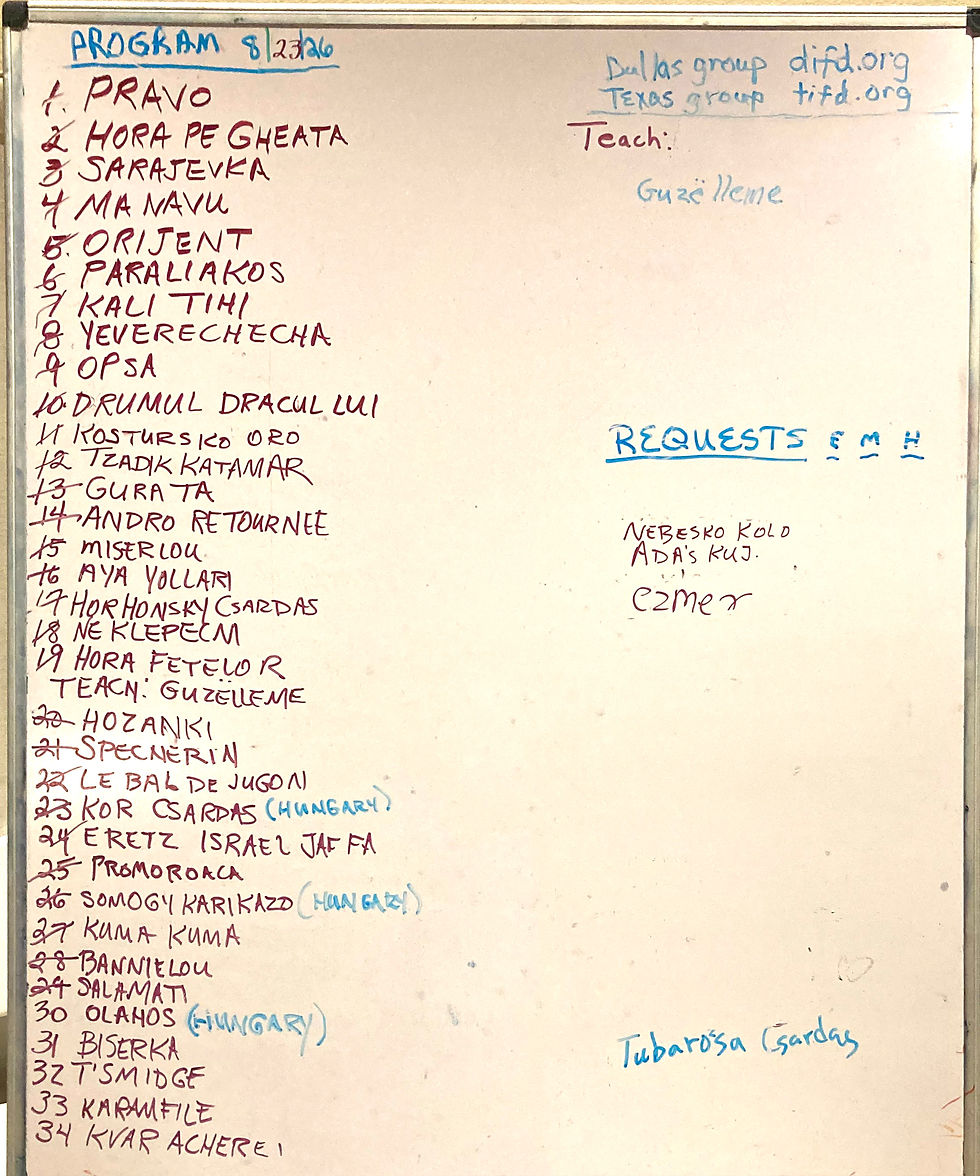 PROGRAM 8/23/26
1. PRAVO
2 HORA PE GHEATA
3 SARAJEVKA
4 MA NAVU
5. ORIJENT
6 PARALIAKOS
7 KALI TIHI
8 YEVERECHECHA
9 OPSA
10. DRUMUL DRACUL LUI
11 KOSTURSKO ORO
12 TZADIK KATAMAR
13 GURA TA
14 ANDRO RETOURNEE
15 MISERLOU
16 AYA YOLLARI
17 HORHONSKY CSARDAS
18 NE KLEPECM
19 HORA FETELOR
TEACH: GUZËLLEME
20 HOZANKI
21 SPECNERIN
22 LE BAL DE JUGON
23 KOR CSARDAS (HUNGARY)
24 ERETZ ISRAEL JAFFA
25 PROMOROACA
26 SOMOGY KARIKAZO (HUNGARY)
27 KUMA KUMA
28 BANNIELOU
29 SALAMATI
30 OLAHOS (HUNGARY)
31 BISERKA
32 T'SMIDGE
33 KARAMFILE
34 KVAR ACHEREI
Dallas group difd.org
Texas group tifd.org
Teach:
Guzëlleme
REQUESTS E M H
NEBESKO KOLO
ADA'S KUJ.
Czmer
Tubarosa Csardas